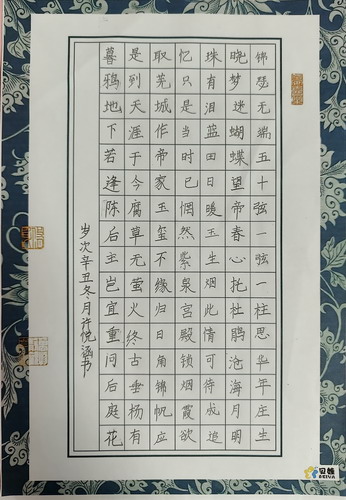 锦瑟无端五十弦一弦一柱思华年庄生
晓梦迷蝴蝶望帝春心托杜鹃沧海月明
珠有泪蓝田日暖玉生烟此情可待成追
忆只是当时已惘然紫泉宫殿锁烟霞欲
取芜城作帝家玉玺不缘归日角锦帆应
是到天涯于今腐草无萤火终古垂杨有
暮鸦地下若逢陈后主岂宜重问后庭花
岁次辛丑冬月许悦涵书